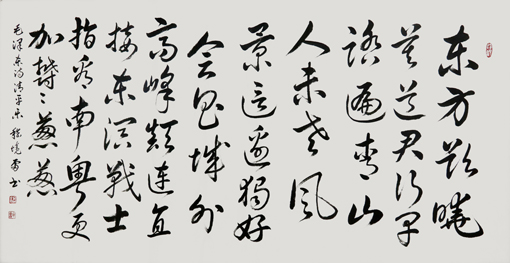 东方欲晓
莫道君行早
踏遍青山
人未老风
景这边独好
会昌城外
高峰颠连直
接东溟战士
指看南粤更
加鬱〻葱葱
毛泽东词清平乐 书